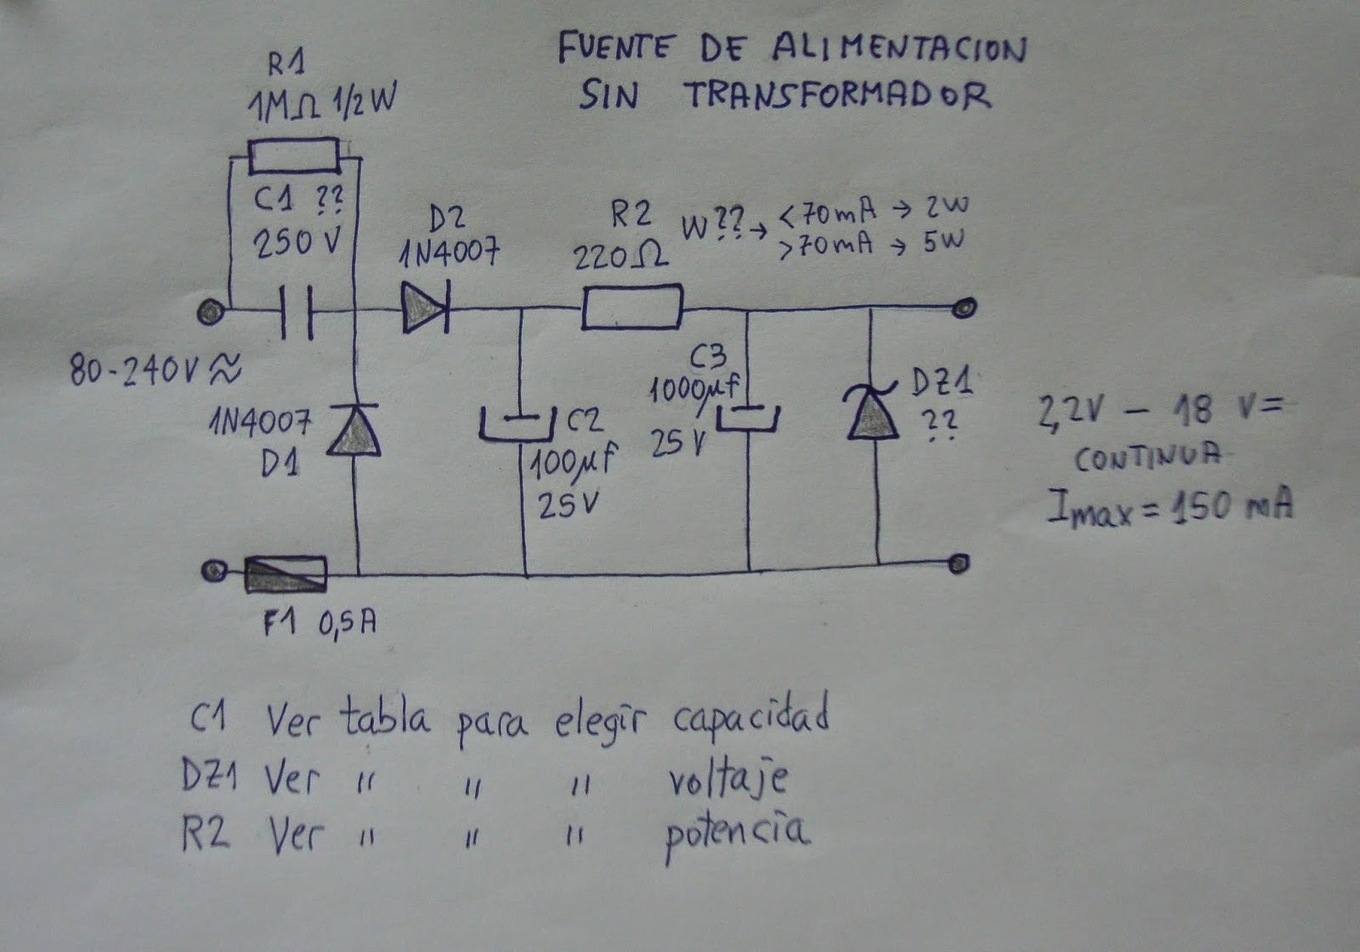 FUENTE DE ALIMENTACION
SIN TRANSFORMADOR
R1
1MΩ 1/2W
C1 ??
250 V
D2
1N4007
R2
220Ω
W?? → <70mA → 2W
>70mA → 5W
80-240V ≈
1N4007
D1
C2
100µf
25V
C3
1000µf
25 V
DZ1
??
2,2V - 18 V=
CONTINUA
Imax = 150 mA
F1 0,5A
C1 Ver tabla para elegir capacidad
DZ1 Ver " " " voltaje
R2 Ver " " " potencia